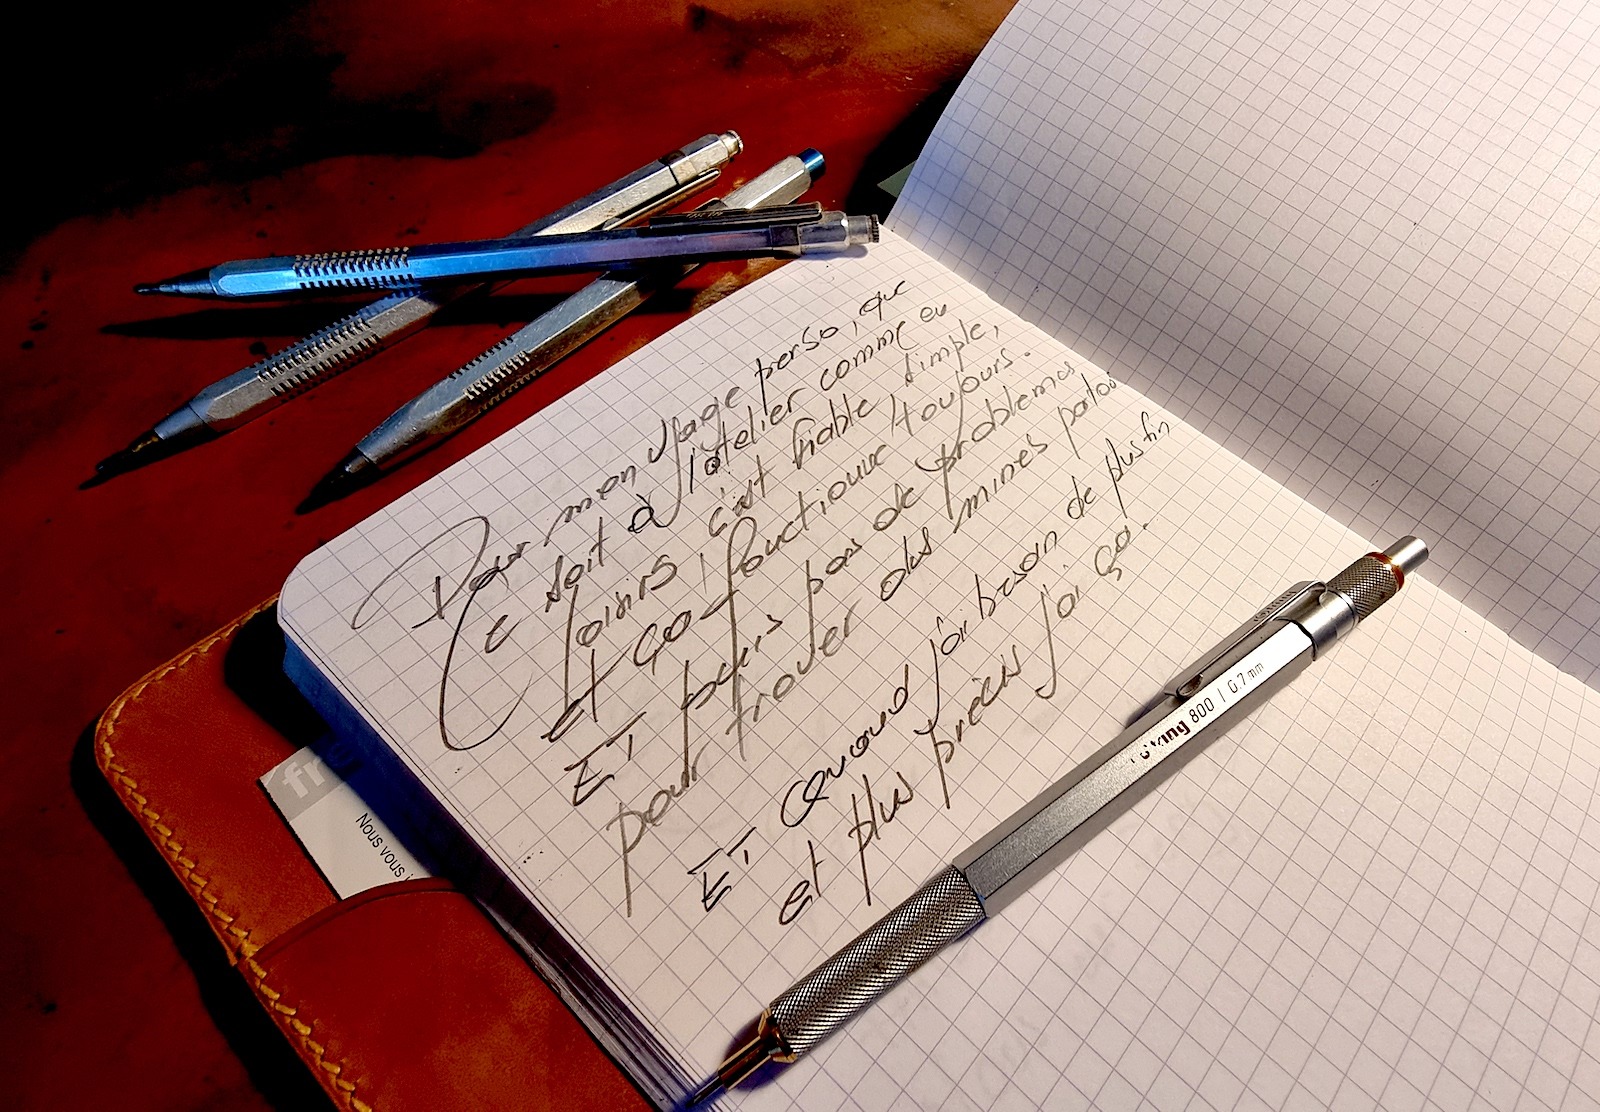 Pour mon usage perso, que
ce soit à l'atelier comme en
loisirs c'est fiable, simple,
et ça fonctionne toujours.
ET puis pas de problemes
pour trouver des mines partout
ET quand j'ai besoin de plus fin
et plus précis j'ai ça.
rotring 800 | 0.7mm
Nous vous